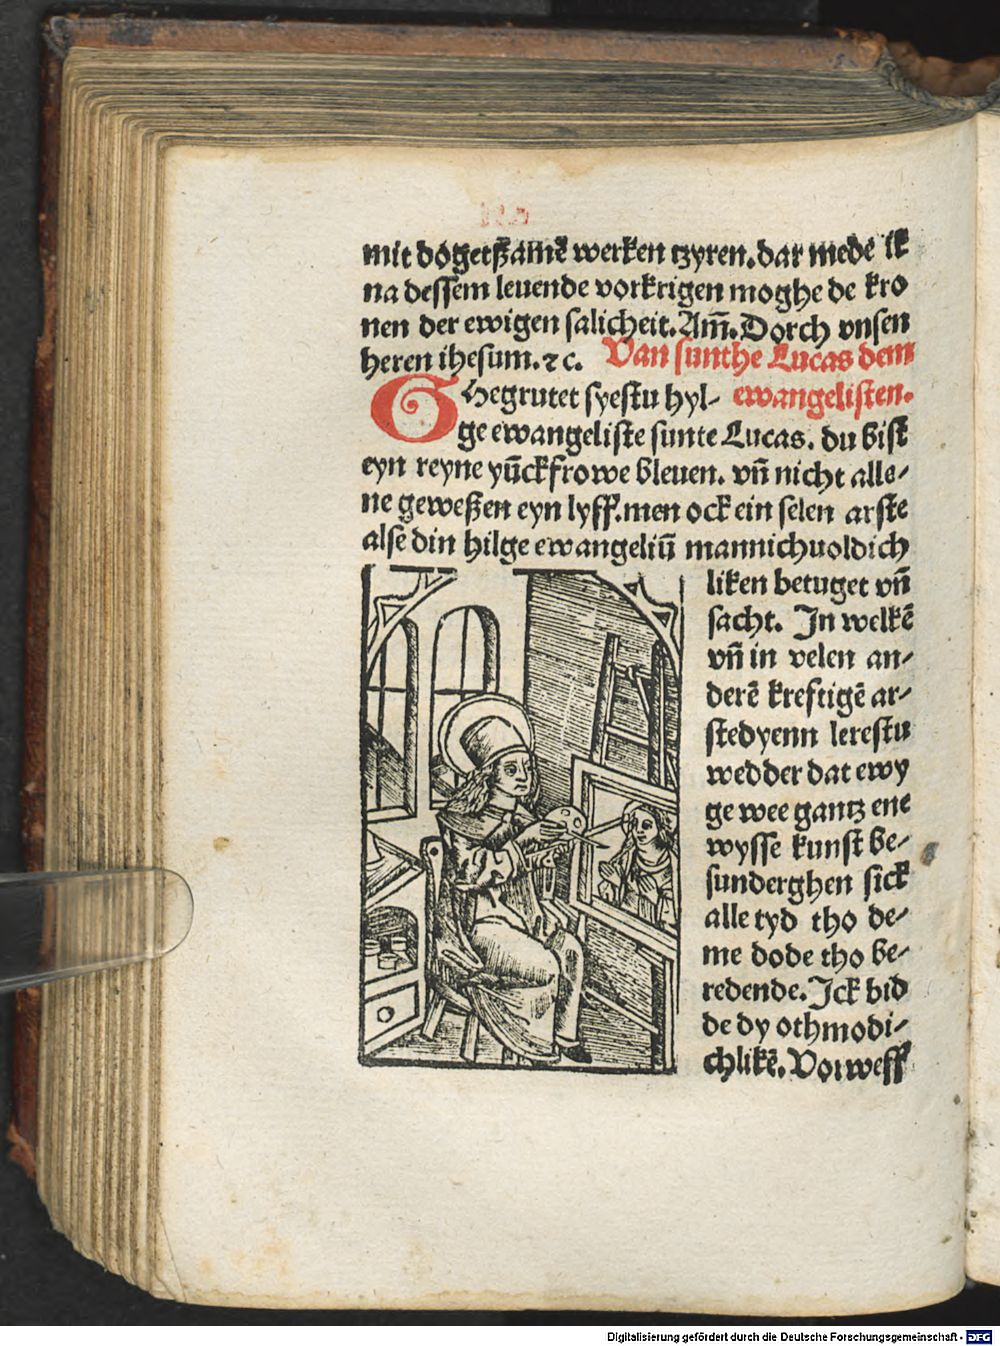 mit dogetßamē werken tzyren. dar mede ik
na dessem leuende vorkrigen moghe de kro
nen der ewigen salicheit. Am̄. Dorch vnsen
heren ihesum. ⁊ c. Van sunthe Lucas dem
Ghegrutet syestu hyl- ewangelisten.
ge ewangeliste sunte Lucas. du bist
eyn reyne yūckfrowe bleuen. vn̄ nicht alle-
ne geweßen eyn lyff. men ock ein selen arste
alse din hilge ewangeliū mannichuoldich
liken betuget vn̄
sacht. In welkē
vn̄ in velen an-
derē kreftigē ar-
stedyenn lerestu
wedder dat ewy
ge wee gantz ene
wysse kunst be-
sunderghen sick
alle tyd tho de-
me dode tho be-
redende. Ick bid
de dy othmodi-
chlikē. Vorweff
Digitalisierung gefördert durch die Deutsche Forschungsgemeinschaft - DFG